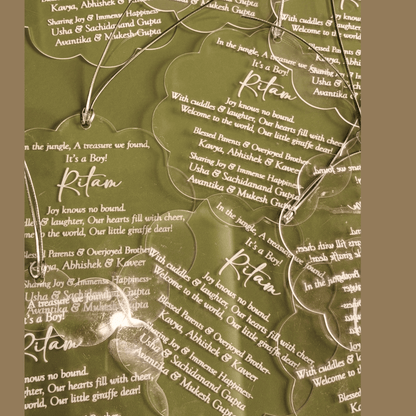 Kavya, Abhishek &
Sharing Joy & Immense Happiness-
Usha & Sachidanand Gupta
Avantika & Mukesh Gupta
With cuddles &
Welcome to the
Blessed Parents &
Kavya,
In the jungle, A treasure we found,
It's a Boy!
Ritam
Joy knows no bound.
With cuddles & laughter, Our hearts fill with cheer,
Welcome to the world, Our little giraffe dear!
Blessed Parents & Overjoyed Brother-
Kavya, Abhishek & Kaveer
Sharing Joy & Immense Happiness-
Usha & Sachidanand Gupta
Avantika & Mukesh Gupta
In the jungle, A treasure we found,
It's a Boy!
Ritam
Joy knows no bound.
& laughter, Our hearts fill with cheer,
to the world, Our little giraffe dear!
Blessed Parents & Overjoyed Brother-
Kavya, Abhishek & Kaveer
Sharing Joy & Immense Happiness-
Usha & Sachidanand Gupta
Avantika & Mukesh Gupta
In the jungle, A treasure we found,
It's a Boy!
Ritam
Joy knows no bound.
With cuddles & laughter, Our hearts fill with cheer,
Welcome to the world, Our little giraffe dear!
Blessed Parents & Overjoyed Brother-
Kavya, Abhishek & Kaveer
Sharing Joy & Immense Happiness-
Usha & Sachidanand Gupta
Avantika & Mukesh Gupta
treasure we found,
It's a Boy!
Ritam
knows no bound.
laughter, Our hearts fill with cheer,
world, Our little giraffe dear!
Parents & Overjoyed Brother-
Abhishek & Kaveer
In the jungle,
With cuddles &
Welcome to the
Blessed